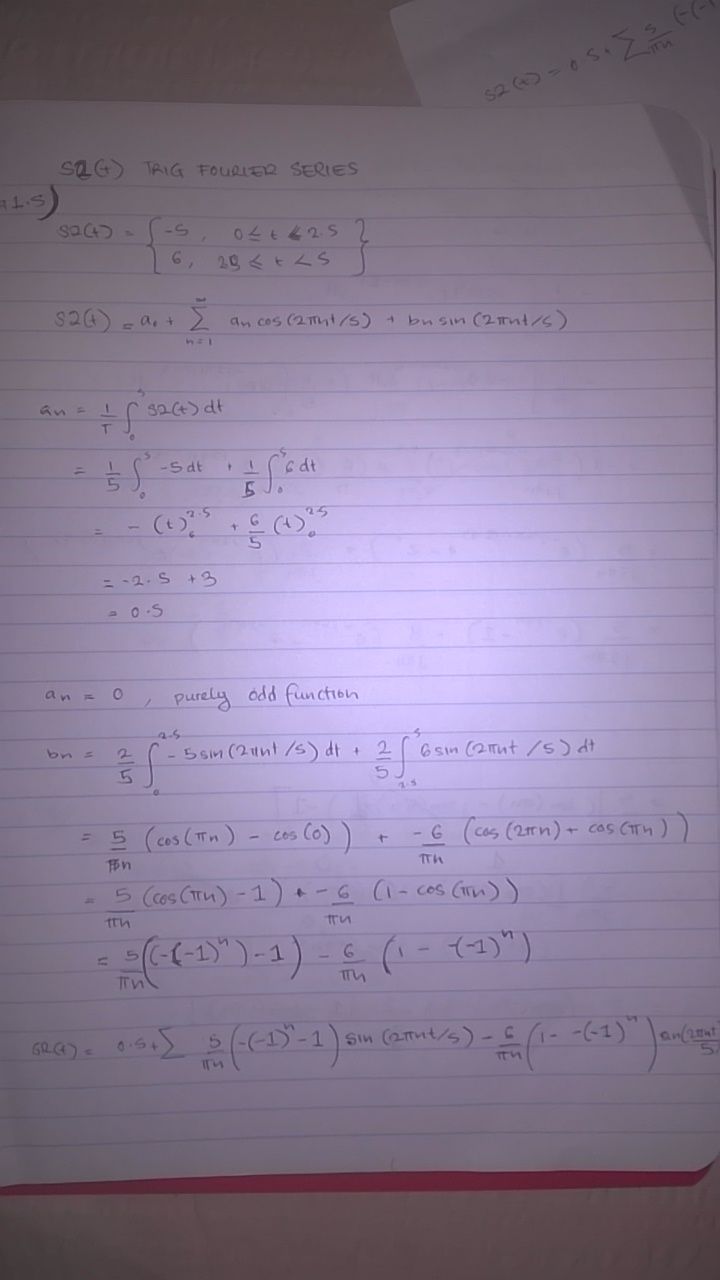 s2(t) = 0.5 + ∑ 5/πn (-(-1
S2(t) TRIG FOURIER SERIES
1.5)
S2(t) = { -5, 0 ≤ t < 2.5 }
{ 6, 2.5 ≤ t < 5 }
S2(t) = a₀ + ∑_{n=1}^{∞} an cos(2πnt/5) + bn sin(2πnt/5)
an = 1/T ∫₀⁵ S2(t) dt
= 1/5 ∫₀⁵ -5 dt + 1/5 ∫₀⁵ 6 dt
= - (t)₀^2.5 + 6/5 (t)₀^2.5
= -2.5 + 3
= 0.5
an = 0, purely odd function
bn = 2/5 ∫₀^2.5 -5 sin(2πnt/5) dt + 2/5 ∫_2.5^5 6 sin(2πnt/5) dt
= 5/πn (cos(πn) - cos(0)) + -6/πn (cos(2πn) + cos(πn))
= 5/πn (cos(πn) - 1) + -6/πn (1 - cos(πn))
= 5/πn (-(-1)ⁿ) - 1) - 6/πn (1 - -(-1)ⁿ)
S2(t) = 0.5 + ∑ 5/πn (-(-1)ⁿ - 1) sin(2πnt/5) - 6/πn (1 - -(-1)ⁿ) sin(2πnt/5